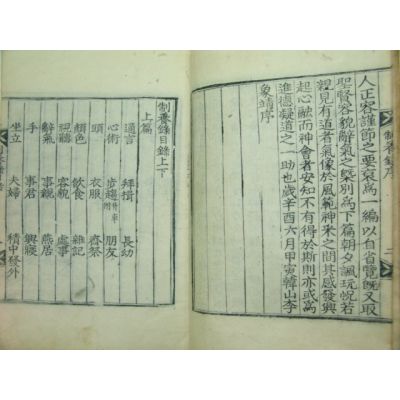 制養錄序
人正容謹節之要裒爲一編以自省覽旣又取
聖賢容貌辭氣之槩別爲下篇朝夕諷玩怳若
親見有道者氣像於風範神采之間其感發興
起心融而神會者安知不有得於斯則亦或爲
進德凝道之一助也歲辛酉六月甲寅韓山李
象靖序
制養錄目錄上下
上篇
通言 拜揖 長幼
心術 步趨附升車 朋友
頭 衣服 齊祭
顏色 飲食 雜記
視聽 容貌 處事
辭氣 事親 燕居
手 事君 興寢
坐立 夫婦 積中發外